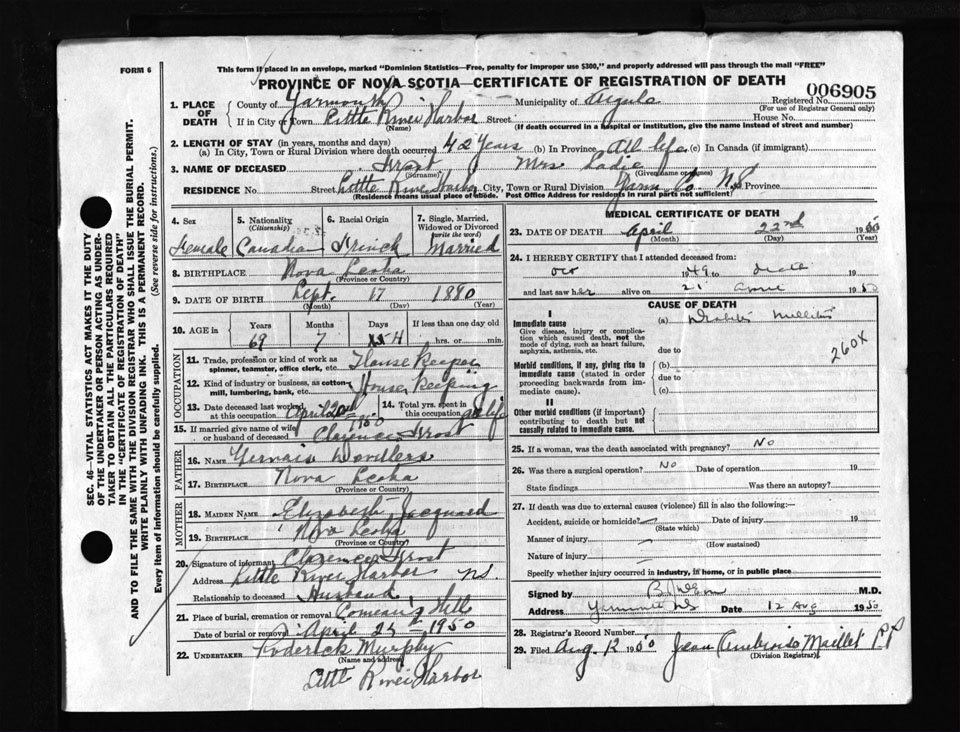 FORM 6
This form if placed in an envelope, marked "Dominion Statistics—Free, penalty for improper use $300," and properly addressed will pass through the mail "FREE"
PROVINCE OF NOVA SCOTIA—CERTIFICATE OF REGISTRATION OF DEATH
006905
1. PLACE OF DEATH
County of Yarmouth Municipality of Argyle Registered No.
(For use of Registrar General only)
If in City or Town Little River Harbor Street House No.
(Name) (If death occurred in a hospital or institution, give the name instead of street and number)
2. LENGTH OF STAY (in years, months and days)
(a) In City, Town or Rural Division where death occurred 42 Years (b) In Province All life (c) In Canada (if immigrant)
3. NAME OF DECEASED Frost Mrs Sadie
(Surname) (Given name or names)
RESIDENCE No. Street Little River Harbor City, Town or Rural Division Yarm Co. N.S Province
(Residence means usual place of abode. Post Office Address for residents in rural parts not sufficient)
SEC. 46—VITAL STATISTICS ACT MAKES IT THE DUTY
OF THE UNDERTAKER OR PERSON ACTING AS UNDER-
TAKER TO OBTAIN ALL THE PARTICULARS REQUIRED
IN THE "CERTIFICATE OF REGISTRATION OF DEATH"
AND TO FILE THE SAME WITH THE DIVISION REGISTRAR WHO SHALL ISSUE THE BURIAL PERMIT.
WRITE PLAINLY WITH UNFADING INK. THIS IS A PERMANENT RECORD.
Every item of information should be carefully supplied. (See reverse side for instructions.)
4. Sex
Female
5. Nationality
(Citizenship)
Canadian
6. Racial Origin
French
7. Single, Married,
Widowed or Divorced
(write the word)
Married
8. BIRTHPLACE Nova Scotia
(Province or Country)
9. DATE OF BIRTH Sept. 17 1880
(Month) (Day) (Year)
10. AGE in
Years Months Days If less than one day old
69 7 4 hrs. or min.
OCCUPATION
11. Trade, profession or kind of work as
spinner, teamster, office clerk, etc. House Keeper
12. Kind of industry or business, as cotton
mill, lumbering, bank, etc. House Keeping
13. Date deceased last worked
at this occupation April 20th 1950
14. Total yrs. spent in
this occupation all life
15. If married give name of wife
or husband of deceased Clarence Frost
FATHER
16. NAME
17. BIRTHPLACE Nova Scotia
(Province or Country)
MOTHER
18. MAIDEN NAME Elizabeth Jacquard
19. BIRTHPLACE Nova Scotia
(Province or Country)
20. Signature of informant Clarence Frost
Address Little River Harbor N.S.
Relationship to deceased Husband
21. Place of burial, cremation or removal Comeau's Hill
Date of burial or removal April 25 - 1950
22. UNDERTAKER Roderick Murphy
(Name and address)
Little River Harbor
MEDICAL CERTIFICATE OF DEATH
23. DATE OF DEATH April 22nd 1950
(Month) (Day) (Year)
24. I HEREBY CERTIFY that I attended deceased from:
1949 to date 19
and last saw her alive on 21 1950
CAUSE OF DEATH
I
Immediate cause
Give disease, injury or complica-
tion which caused death, not the
mode of dying, such as heart failure,
asphyxia, asthenia, etc.
(a) Diabetis Mellitis
due to
260X
Morbid conditions, if any, giving rise to
immediate cause (stated in order
proceeding backwards from im-
mediate cause).
(b)
due to
(c)
II
Other morbid conditions (if important)
contributing to death but not
causally related to immediate cause.
25. If a woman, was the death associated with pregnancy? No
26. Was there a surgical operation? No Date of operation 19
State findings Was there an autopsy?
27. If death was due to external causes (violence) fill in also the following:—
Accident, suicide or homicide? Date of injury 19
(State which)
Manner of injury
(How sustained)
Nature of injury
Specify whether injury occurred in industry, in home, or in public place
Signed by M.D.
Address Date 12 Aug 1950
28. Registrar's Record Number
29. Filed Aug. 12 1950 Jean Ambroise Maillet PP
(Division Registrar)